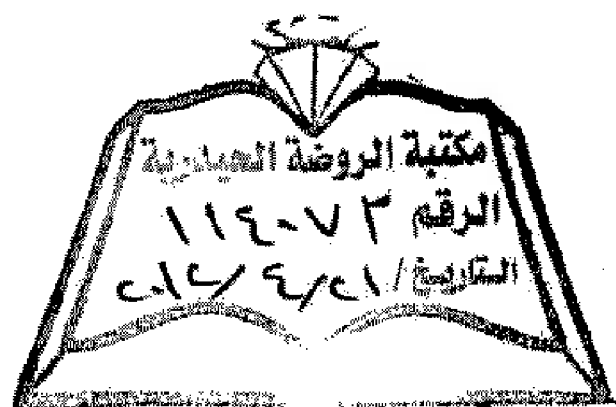 مكتبة الروضة الحيدرية
الرقم ١١٤٠٧٣
التاريخ / ٢١ / ٤ / ٢٠١٢